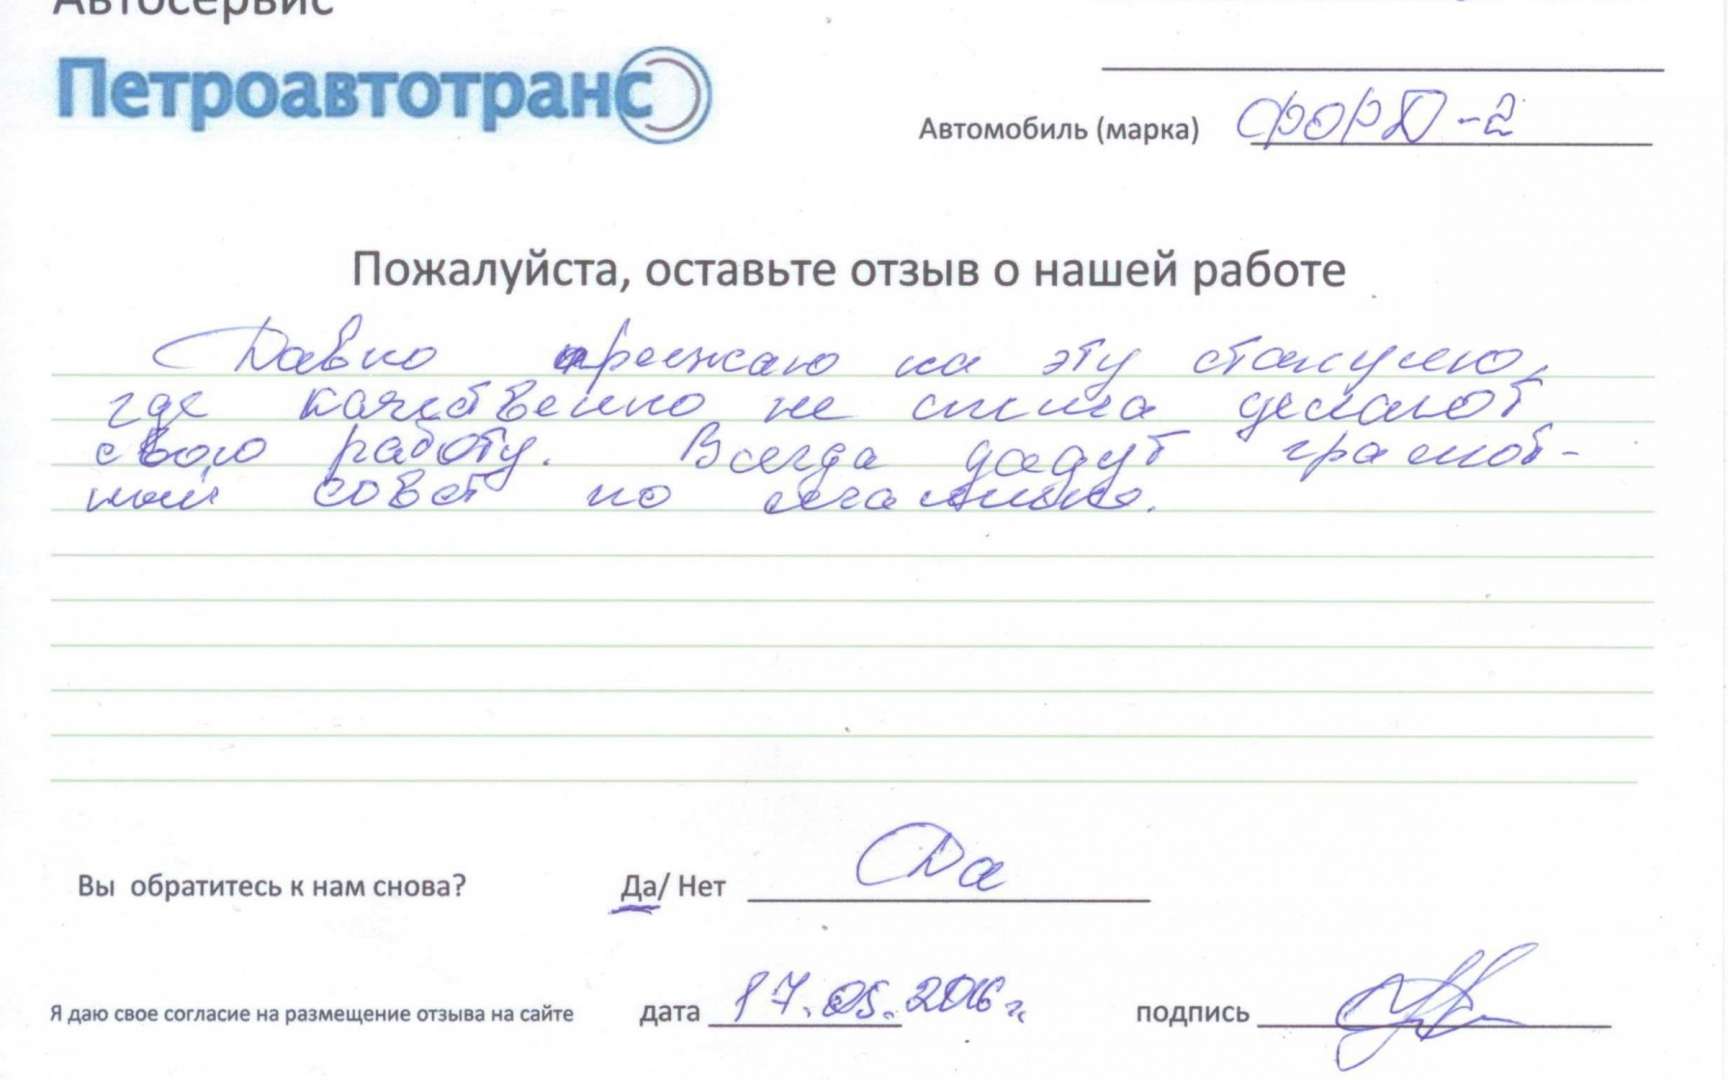 Автосервис
Петроавтотранс
Автомобиль (марка) ФОРД-2
Пожалуйста, оставьте отзыв о нашей работе
Давно приезжаю на эту станцию,
где качественно не спеша делают
свою работу. Всегда дадут грамот-
ный совет по машине.
Вы обратитесь к нам снова? Да/ Нет Да
Я даю свое согласие на размещение отзыва на сайте дата 17.05.2016 г. подпись